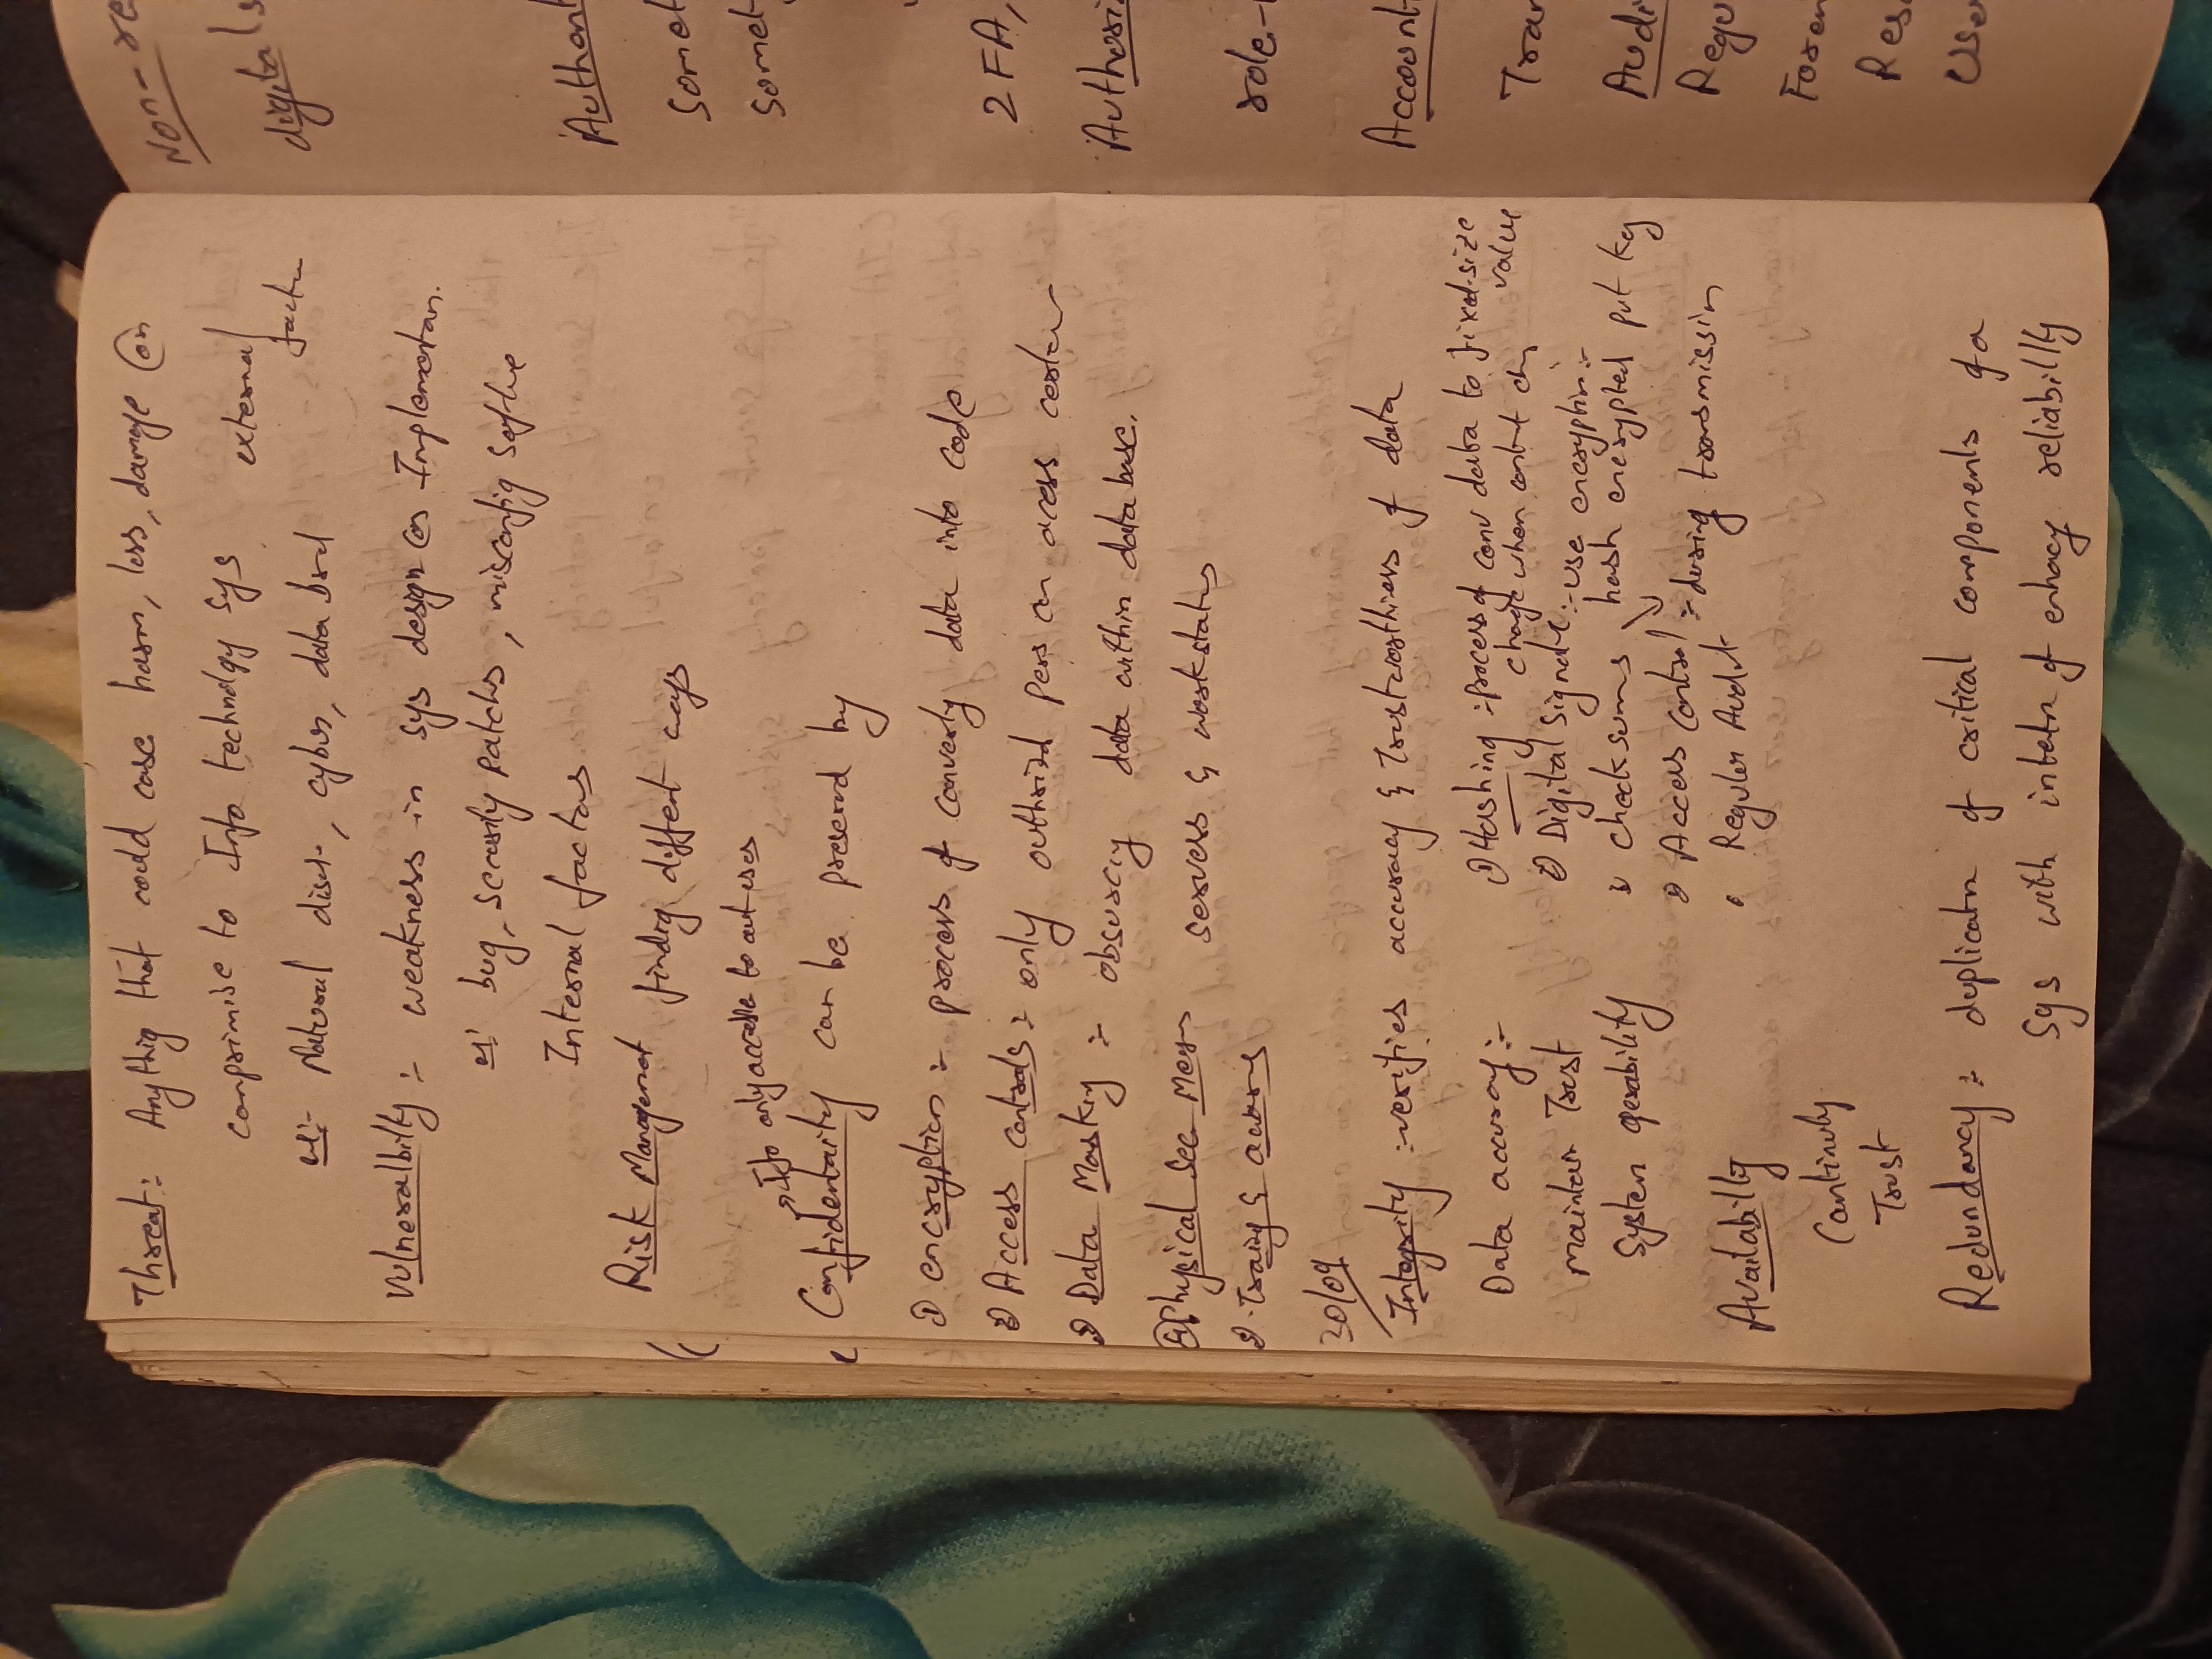 Threat :- Anythig that could case harm, loss, damage (or
comprimise to Info technolgy sys external
factor
ex:- Natural disa, cyber, data
Vulneralbilty :- weakness in sys design (or Implementan.
ex: bug, security patchs, misconfig
Internal factors
Risk Managemet findig diffent ways
→ Ifo only accessble to aut uses
Confidentaity can be preserved by
① encryption :- process of converty data into code
② Access controls :- only authrizd pers can acess certan
③ Data Maskig :- obsurciy data within data base.
④ Physical Sec Mesrs servers & workstatns
⑤ Traiig &
30/09
Integrity :- verifies accuracy & Trustworthiness of data
Data accuracy :-
maintain Trust
System operability
① Hashing :- process of conv data to fixed-size
value
chage when contnt chg
② Digital Signatre :- use encryptin :-
③ checksums hash encrypted pvt key
④ Access control :- during transmissin
• Reguler Audit
Availabilty
Continuty
Trust
Redundancy :- duplicatn of critical components of a
Sys with intetn of enhacg reliabillty
Non-re
digital s
Authent
Somet
Somet
2FA,
Authori
role-
Account
Tran
Audi
Regu
Foren
Res
User